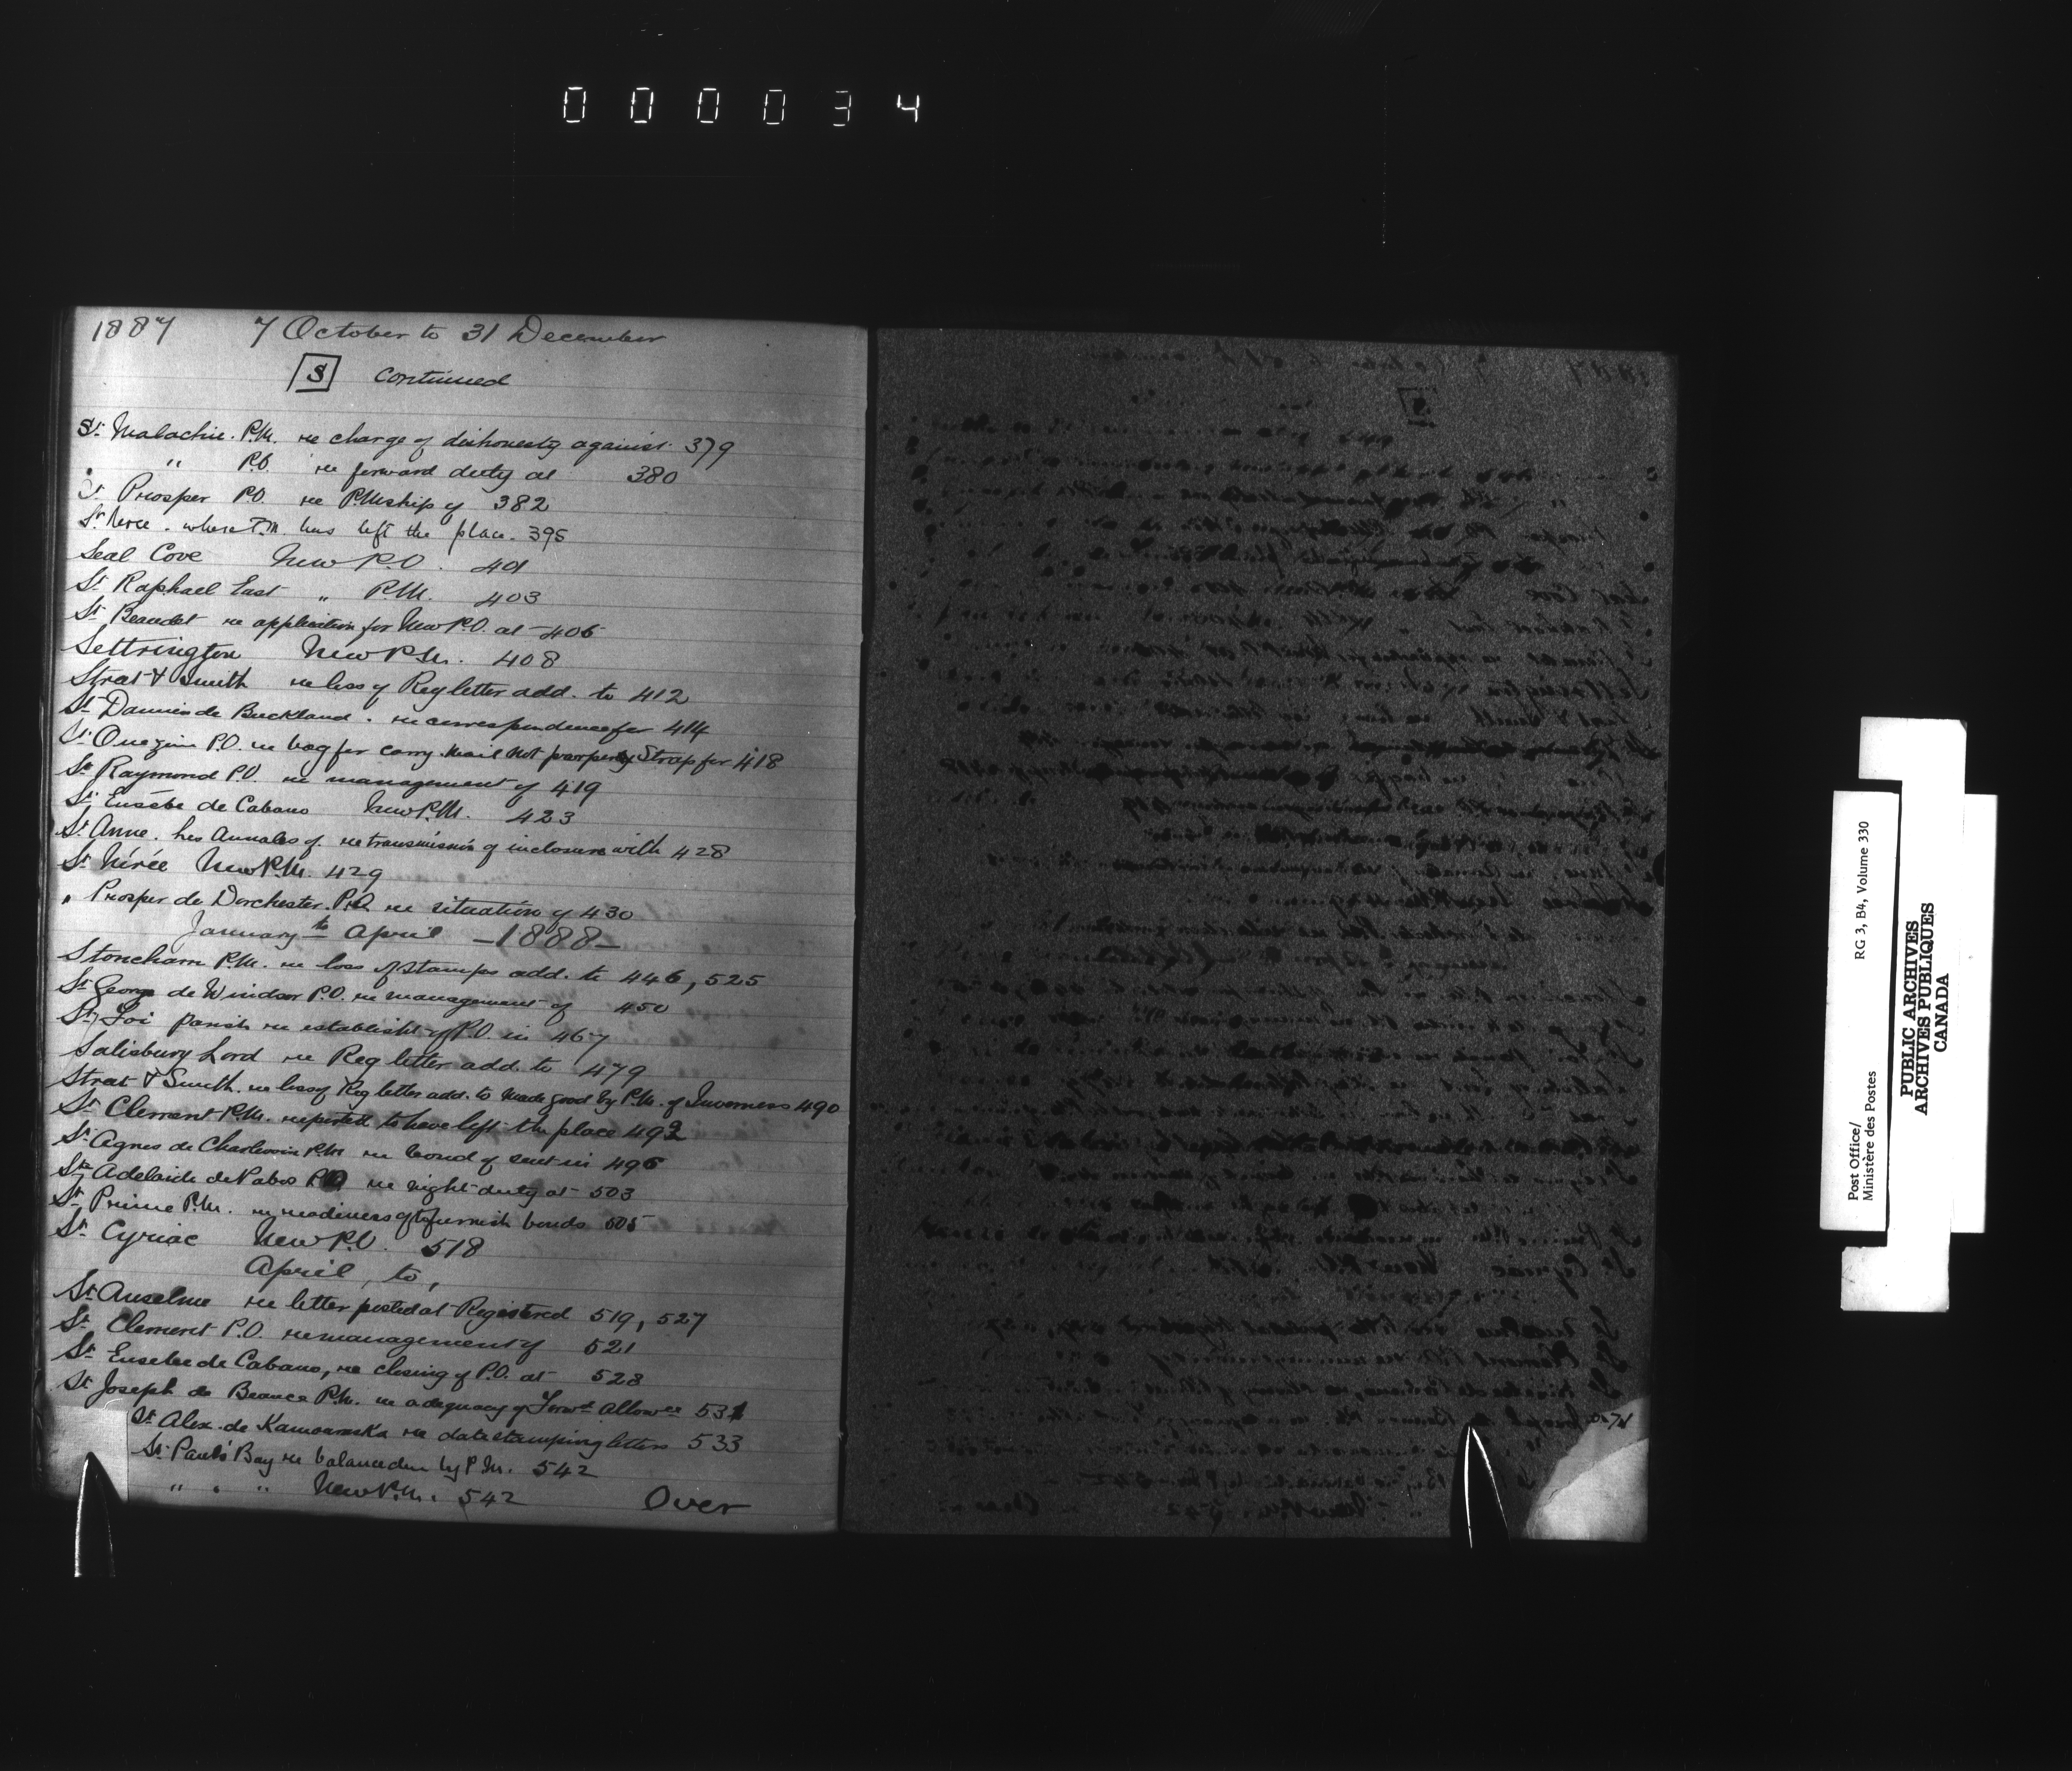 000034
1887 7 October to 31 December
S continued
St Malachie. P.M. re charge of dishonesty against 379
" P.O. re forward duty at 380
St Prosper P.O. re P.Mship of 382
St Neree. where P.M. has left the place. 395
Seal Cove New P.O. 401
St Raphael East " P.M. 403
St Beaudet re application for New P.O. at 406
Settrington New P.M. 408
Strat & Smith re loss of Reg letter add. to 412
St Damien de Buckland. re correspondence for 414
St Onezime P.O. re bag for carry. mail not parperly Strap for 418
St Raymond P.O. re management of 419
St Eusèbe de Cabano New P.M. 423
St Anne. les Annales of re transmission of inclosure with 428
St Nérée New P.M. 429
" Prosper de Dorchester. P.O. re situation of 430
January to April -1888-
Stoneham P.M. re loss of stamps add. to 446, 525
St George de Windsor P.O. re management of 450
Ste Foi parish re establisht of P.O. in 467
Salisbury Lord re Reg letter add. to 479
Strat & Smith. re loss of Reg letter add. to made good by P.M. of Inverness 490
St Clement P.M. reported to have left the place 492
St Agnes de Charlevoix P.M. re bond of sent in 496
Ste Adelaide de Pabos P.O. re night duty at 503
St Prime P.M. re readiness of to furnish bonds 505
St Cyriac New P.O. 518
April, to,
St Anselme re letter posted at Registered 519, 527
St Clement P.O. re management of 521
St Eusebe de Cabano, re closing of P.O. at 528
St Joseph de Beauce P.M. re adequacy of Forwd Allowce 531
St Alex. de Kamouraska re date stamping letters 533
St Paul's Bay re balance due by P.M. 542
" " " New P.M. 542 Over
Post Office/ RG 3, B4, Volume 330
Ministère des Postes
PUBLIC ARCHIVES
ARCHIVES PUBLIQUES
CANADA